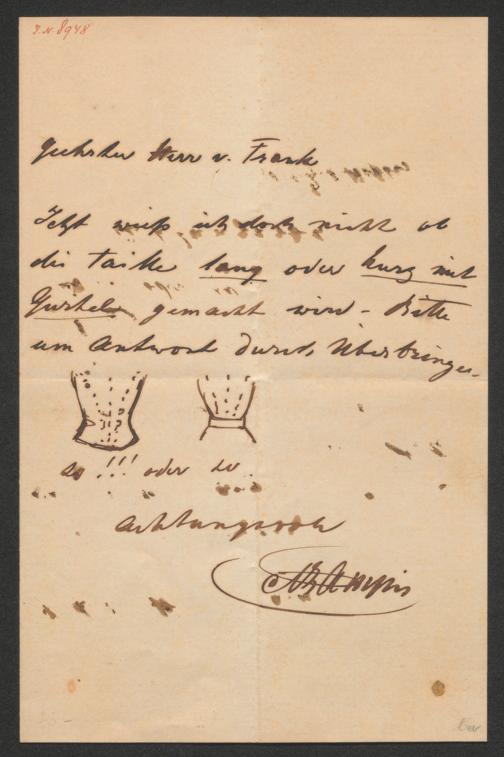 J. N. 8948
Geehrter Herr v. Frank
Jetzt weiß ich doch nicht ob
die Taille lang oder kurz mit
Gürtel gemacht wird - Bitte
um Antwort durch Überbringer.
so !!! oder so
Achtungsvoll